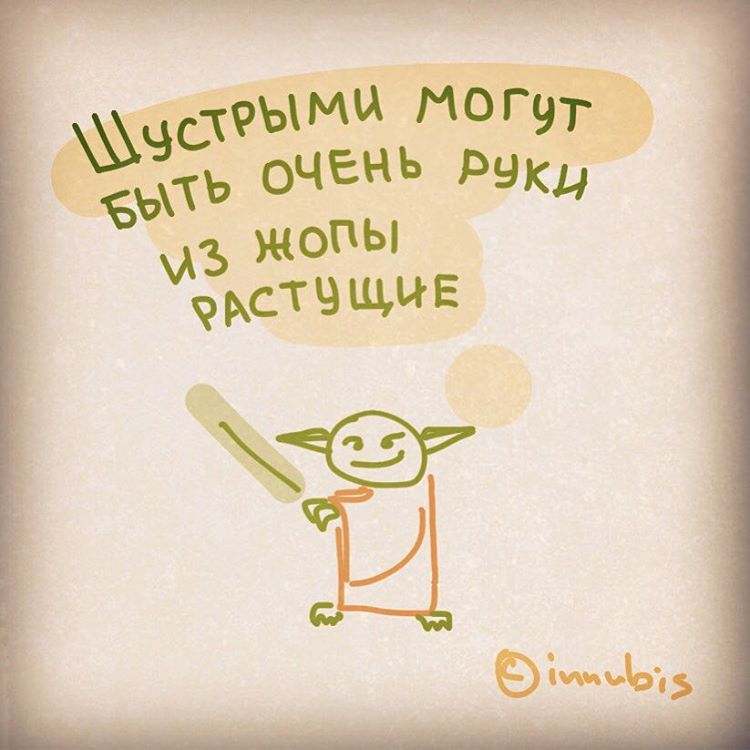 Шустрыми могут
быть очень руки
из жопы
растущие
©innubis